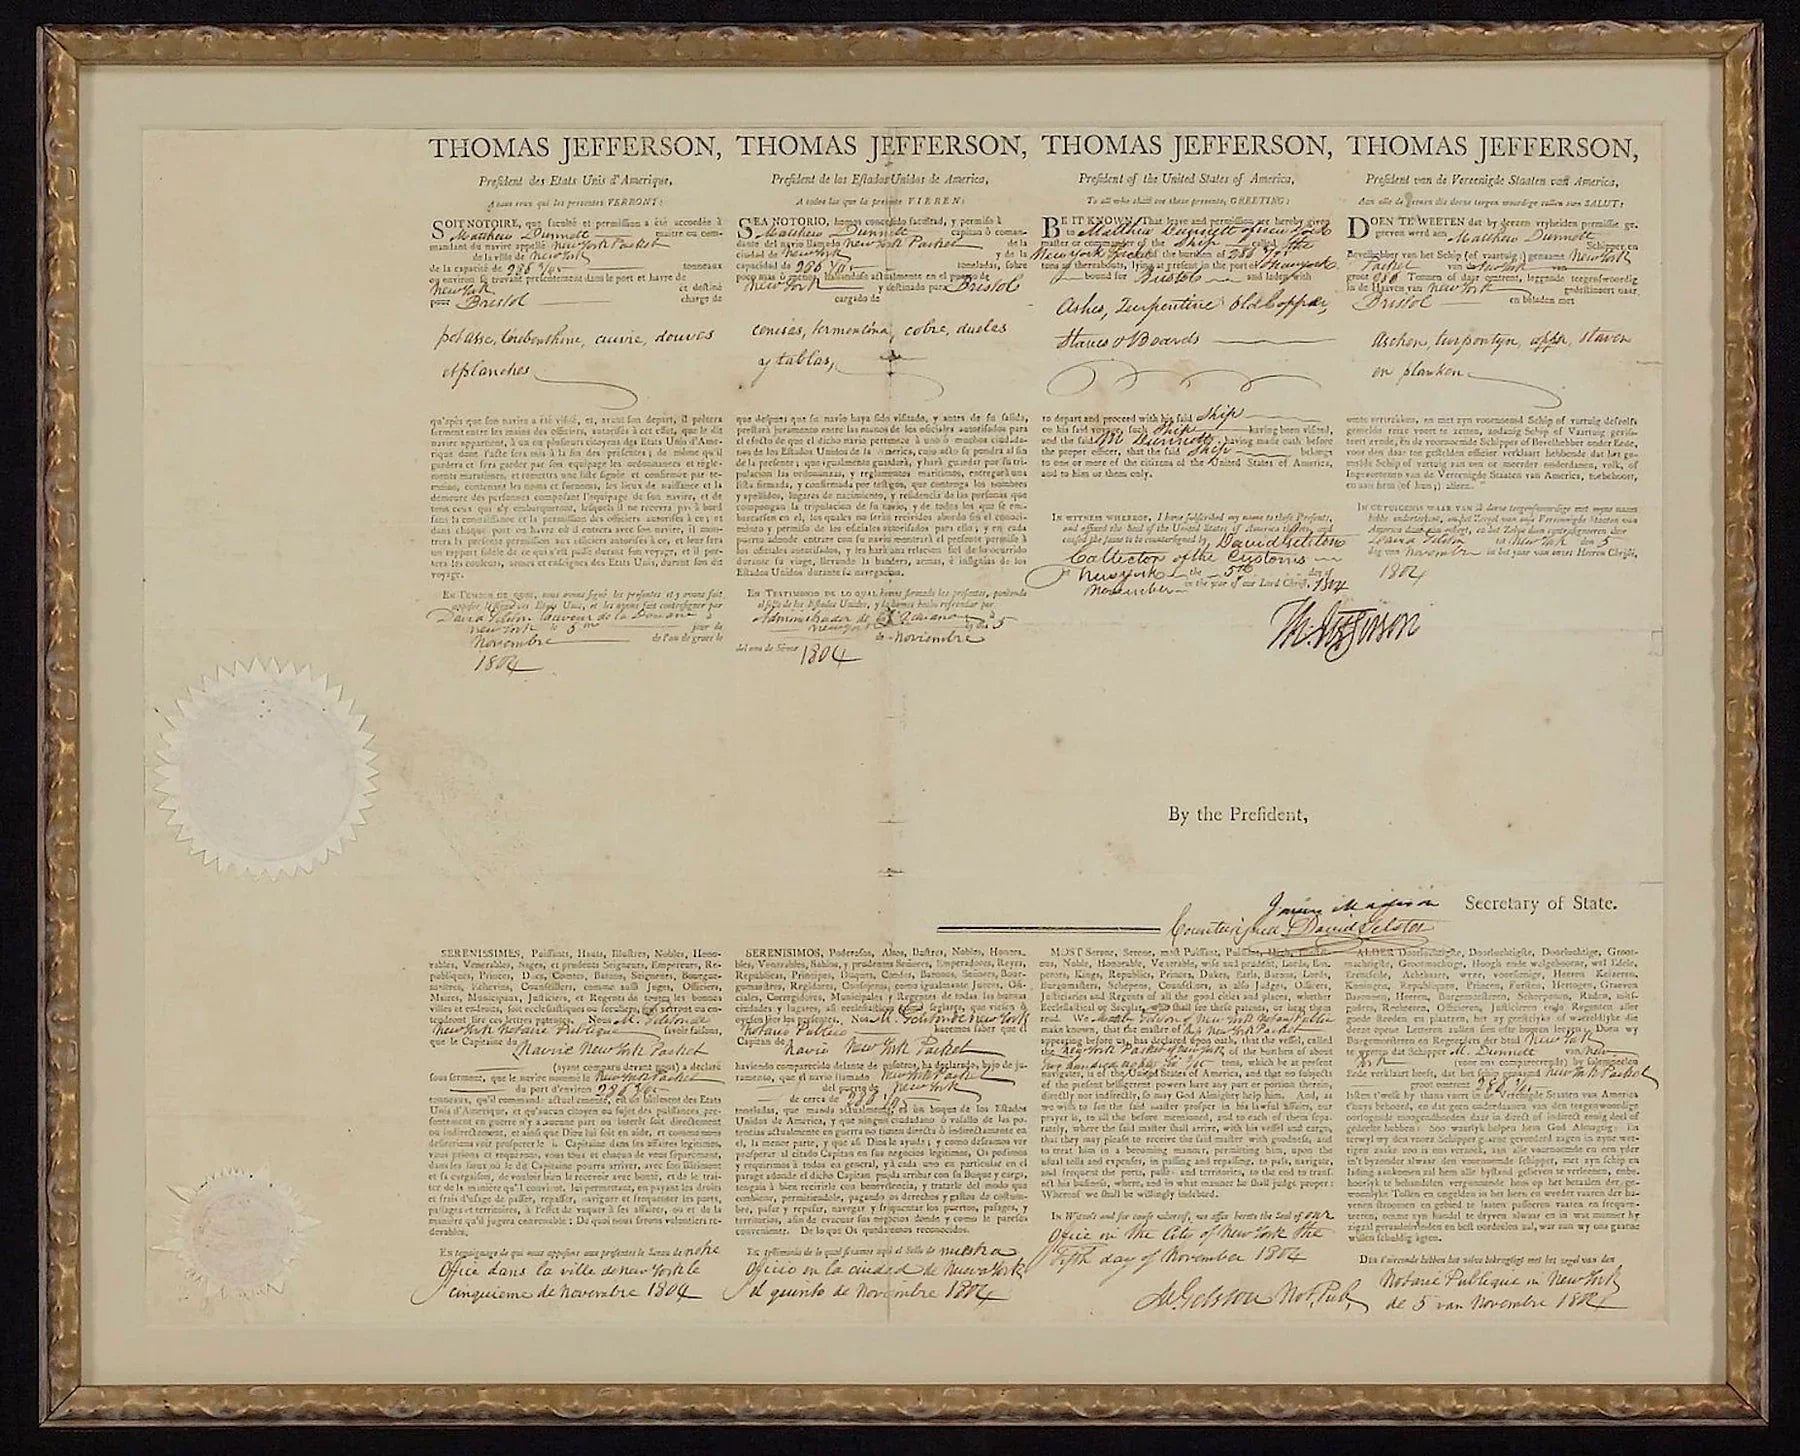 THOMAS JEFFERSON,
President des Etats Unis d'Amerique,
A tous ceux qui les presentes VERRONT:
SOIT NOTOIRE, que faculté et permission a été accordée à
Matthew Dunnett maitre ou com-
mandant du navire appellé New York Packet
de la ville de New York
de la capacité de 286 tonneaux
ou environ se trouvant presentement dans le port et havre de
New York et destiné
pour Bristol chargé de
potasse, térébenthine, cuivre, douves
et planches
qu'après que son navire a été visité, et, avant son depart, il prêtera
serment entre les mains des officiers, autorisés à cet effet, que le dit
navire appartient, à un ou plusieurs citoyens des Etats Unis d'Ame-
rique dont l'acte sera mis à la fin des présentes; de même qu'il
gardera et fera garder par son equipage les ordonnances et règle-
ments maratimes, et remettra une liste signée et confirmée par te-
moins, contenant les noms et surnoms, les lieux de naissance et la
demeure des personnes composant l'equipage de son navire, et de
tous ceux qui s'y embarqueront, lesquels il ne recevra pas à bord
sans la connaissance et la permission des officiers autorisés à ce; et
dans chaque port ou havre où il entrera avec son navire, il mon-
trera la presente permission aux officiers autorisés à ce, et leur fera
un rapport fidèle de ce qui s'est passé durant son voyage, et il por-
tera les couleurs, armes et enseignes des Etats Unis, durant son dit
voyage.
EN TEMOIN DE QUOI, nous avons signé les présentes et y avons fait
apposer le sceau des Etats Unis, et les avons fait contresigner par
David Gelston de la Douane à
New York le 5me jour de
Novembre de l'an de grace le
1804
THOMAS JEFFERSON,
President de los Estados Unidos de America,
A todos los que la presente VIEREN:
SEA NOTORIO, hemos concedido facultad, y permiso à
Matthew Dunnett capitan ó coman-
dante del navio llamado New York Packet de la
ciudad de New York y de la
capacidad de 286 toneladas, sobre
poco mas ó menos, hallandose actualmente en el puerto de
New York y destinado para Bristol
cargado de
cenizas, termentina, cobre, duelas
y tablas,
que despues que su navio haya sido visitado, y antes de su salida,
prestará juramento entre las manos de los oficiales autorisados para
el efecto de que el dicho navio pertenece à uno ó muchos ciudada-
nos de los Estados Unidos de la America, cujo acto se pondrá al fin
de la presente; que igualmente guardará, y hará guardar por su tri-
pulacion las ordenanzas, y reglamentos maritimos, entregará una
lista firmada, y confirmada por testigos, que contenga los nombres
y apellidos, lugares de nacimiento, y residencia de las personas que
compongan la tripulacion de su navio, y de todos los que se em-
barcarsen en el, los quales no serán recividos abordo sin el conoci-
miento y permiso de los oficiales autorisados para ello; y en cada
puerto adonde entrare con su navio mostrará el presente permiso à
los oficiales autorisados, y les hará una relacion fiel de lo ocurrido
durante su viage, llevando la bandera, armas, é insignias de los
Estados Unidos durante su navegacion.
EN TESTIMONIO DE LO QUAL hemos firmado los presentes, poniendo
el sello de los Estados Unidos, y habemos hecho refrendar por
Administrador de la Aduana
New York dia 5
de Noviembre
del ano de Gracia 1804
THOMAS JEFFERSON,
President of the United States of America,
To all who shall see these presents, GREETING:
BE IT KNOWN, That leave and permission are hereby given
to Matthew Dunnett of New York
master or commander of the Ship called the
New York Packet of the burthen of 286
tons or thereabouts, lying at present in the port of New York
bound for Bristol and laden with
Ashes, Turpentine Old Copper,
Staves & Boards
to depart and proceed with his said Ship
on his said voyage, such Ship having been visited,
and the said M Dunnett having made oath before
the proper officer, that the said Ship belongs
to one or more of the citizens of the United States of America,
and to him or them only.
IN WITNESS WHEREOF, I have subscribed my name to these Presents,
and affixed the Seal of the United States of America thereto, and
caused the same to be countersigned by David Gelston
Collector of the Customs
at New York the 5th day of
November in the year of our Lord Christ, 1804
Th. Jefferson
THOMAS JEFFERSON,
President van de Vereenigde Staaten van America,
Aan alle de geenen die deeze teegen woordige zullen zien SALUT:
DOEN TE WEETEN dat by deezen vryheiden permissie ge-
geeven werd aen Matthew Dunnett
Schipper en
Bevelhebber van het Schip (of vaartuig) genaamt New York
Packet van New York
groot 286 Tonnen of daar omtrent, leggende teegenswoordig
in de Haaven van New York gedestineert naar
Bristol en beladen met
Aschen, turpentyn, staven
en planken
omme vertrekken, en met zyn voornoemd Schip of vartuig deselfs
gemelde reize voort te zetten, zodanig Schip of Vaartuig gevisi-
teert zynde, en de voornoemde Schipper of Bevelhebber onder Eede,
voor den daar toe gestelden officier verklaart hebbende dat het ge-
melde Schip of vartuig aan een of meerder onderdanen, volk, of
Ingezeetenen van de Vereenigde Staaten van America, toebehoort,
en aan hem (of hun;) alleen.
IN GETUIGENIS WAAR VAN ik deeze teegenswoordige met myne naam
hebbe onderteekent, en het Zeegel van onze Vereenigde Staaten van
America daar aan gehegt, en het Zelve doen contrasigneren door
David Gelston te New York den 5
dag van November in het jaar van onzes Heeren Christi,
1804
By the President,
James Madison Secretary of State.
Countersigned David Gelston
SERENISSIMES, Puissants, Hauts, Illustres, Nobles, Hono-
rables, Venerables, Sages, et prudents Seigneurs, Empereurs, Re-
publiques, Princes, Ducs, Comtes, Barons, Seigneurs, Bourgue-
maitres, Echevins, Counseillers, comme aussi Juges, Officiers,
Maires, Municipaux, Justiciers, et Regents de toutes les bonnes
villes et endroits, soit ecclésiastiques ou seculiers, qui verront ou en-
tendront lire ces lettres patentes. Nous M. Gelston de
New York Notaire Publique savoir faisons,
que le Capitaine du Navire New York Packet
(ayant comparu devant nous) a declaré
sous serment, que le navire nommé le New York Packet
du port d'environ 286
tonneaux, qu'il commande actuellement, est un batiment des Etats
Unis d'Amerique, et qu'aucun citoyen ou sujet des puissances pre-
sentement en guerre n'y a aucune part ou interêt soit directement
ou indirectement, et ainsi que Dieu lui soit en aide, et comme nous
desirerions voir prosperer le dit Capitaine dans ses affaires legitimes,
vous prions et requerons, vous tous et chacun de vous separement,
dans les lieux où le dit Capitaine pourra arriver, avec son Bâtiment
et sa cargaison, de vouloir bien le recevoir avec bonté, et de le trai-
ter de la manière qu'il convient, lui permettant, en payant les droits
et frais d'usage de passer, repasser, naviguer et frequenter les ports,
passages et territoires, à l'effet de vaquer à ses affaires, où et de la
manière qu'il jugera convenable: De quoi nous serons volontiers re-
devables.
En temoignage de quoi nous apposons aux presentes le Sceau de notre
Office dans la ville de New York le
cinquieme de Novembre 1804
SERENISIMOS, Poderosos, Altos, Ilustres, Nobles, Honora-
bles, Venerables, Sabios, y prudentes Señores, Emperadores, Reyes,
Republicas, Principes, Duques, Condes, Barones, Señores, Bour-
gomaestres, Regidores, Consejeros, como igualmente Jueces, Ofi-
ciales, Corregidores, Municipales y Regentes de todas las buenas
ciudades y lugares, asi eclesiasticos que seglares, que viesen ó
oyesen leer los presentes. Nos M. Gelston de New York
Notario Publico hacemos saber que el
Capitan de Navio New York Packet
haviendo comparecido delante de nosotros, ha declarado, bajo de ju-
ramento, que el navio llamado New York Packet
del puerto de New York
de cerca de 286
toneladas, que manda actualmente, es un buque de los Estados
Unidos de America, y que ningun ciudadano ó vasallo de las po-
tencias actualmente en guerra no tienen directa ó indirectamente en
el, la menor parte, y que asi Dios le ayude; y como deseamos ver
prosperar al citado Capitan en sus negocios legitimos, Os pedimos
y requirimos à todos en general, y à cada uno en particular en el
parage adonde el dicho Capitan pueda arribar con su Buque y carga,
tengais à bien recivirle con benevolencia, y tratarle del modo que
combiene, permitiendole, pagando os derechos y gastos de costum-
bre, pasar y repasar, navegar y frequentar los puertos, pasages, y
territorios, afin de evacuar sus negocios donde y como le paresca
conveniente. De lo que Os quedaremos reconocidos.
En testimonio de lo qual firmamos aqui el Sello de nuestra
Oficio en la ciudad de Nueva York
el quinto de Noviembre 1804
MOST Serene, Serene, most Puissant, Puissant, High, Illustri-
ous, Noble, Honorable, Venerable, wise and prudent, Lords, Em-
perors, Kings, Republics, Princes, Dukes, Earls, Barons, Lords,
Burgomasters, Schepens, Counselors, as also Judges, Officers,
Justiciaries and Regents of all the good cities and places, whether
Ecclesiastical or Secular, who shall see these patents, or hear them
read. We Gelston of New York Notary Public
make known, that the master of Ship New York Packet
appearing before us, has declared upon oath, that the vessel, called
the New York Packet of New York of the burthen of about
Two hundred eighty Six tons, which he at present
navigates, is of the United States of America, and that no subjects
of the present belligerent powers have any part or portion therein,
directly nor indirectly, so may God Almighty help him. And, as
we wish to see the said master prosper in his lawful affairs, our
prayer is, to all the before mentioned, and to each of them sepa-
rately, where the said master shall arrive, with his vessel and cargo,
that they may please to receive the said master with goodness, and
to treat him in a becoming manner, permitting him, upon the
usual tolls and expenses, in passing and repassing, to pass, navigate,
and frequent the ports, passes and territories, to the end to transf-
act his business, where, and in what manner he shall judge proper:
Whereof we shall be willingly indebted.
In Witness and for cause whereof, we affix hereto the Seal of our
Office in the City of New York the
Fifth day of November 1804
Gelston Not. Pub.
ALDER Doorluchtigste, Doorluchtigste, Doorluchtige, Groot-
machtigste, Grootmachtige, Hoogh ende welgeboorne, wel Edele,
Erendfeste, Achtbaare, wyze, voorsienige, Heeren Keizeren,
Koningen, Republiquen, Princen, Fursten, Hertogen, Graeven
Baronnen, Heeren, Burgemeesteren, Scheepenen, Raden, mits-
gaders, Rechteren, Officieren, Justicieren ende Regenten alle
goede Steeden en plaatzen, het zy geestelyke of waereldlyke die
deeze opene Letteren zullen sien ofte hooren leezen; Doen wy
Burgemeesteren en Regeerders der Stad New York
te weeten dat Schipper M. Dunnett van New
York (voor ons compareerende) by solemneelen
Eede verklaart heeft, dat het schip genaamd New York Packet
groot omtrent 286
lasten t'welk hy thans voert in de Vereenigde Staaten van America
thuys behoord, en dat geen onderdaanen van den teegenwoordigen
oorloogende mogendheeden daar in direct of indirect eenig deel of
gedeelte hebben: Soo waarlyk helpen hem God Almagtig: En
terwyl wy den voorz Schipper gaarne gevorderd zagen in zyne wet-
tigen zaake zoo is ons verzoek, aan alle voornoemde en een yder
in't byzonder alwaar den voornoemde schipper, met zyn schip en
lading aankomen zal hem alle bystand gelieven te verleenen, ende
hoorlyk te behandelen vergunnende hem op het betaalen der ge-
woonlyke Tollen en ungelden in het heen en weeder vaaren der ha-
venen stroomen en gebied te laaten passeeren vaaren en frequen-
teeren, omme zyn handel te dryven alwaar en in wat manner hy
zigzal geraadevinden en best oordeelen zal, waar aan wy ons gaarne
willen schuldig agten.
Des t'oirconde hebben het zelve bekragtigd met het zegel van den
Notarie Publique in New York
de 5 van November 1804